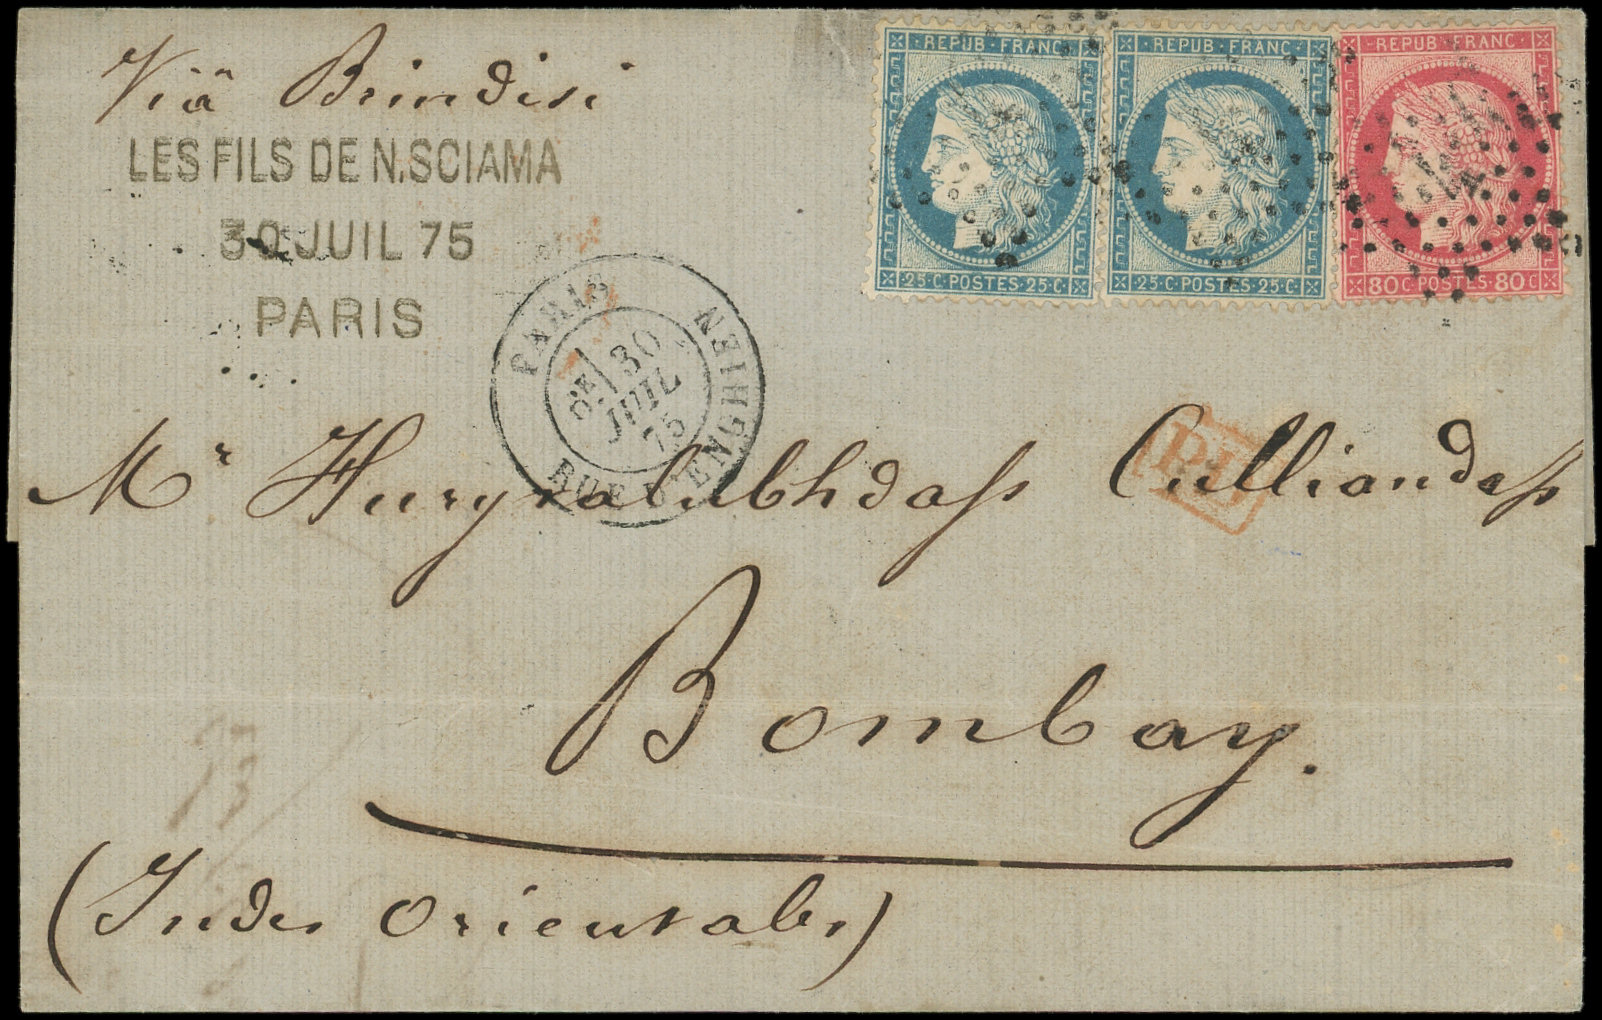 Viâ Brindisi
LES FILS DE N. SCIAMA
30 JUIL 75
PARIS
REPUB · FRANC ·
25 · C · POSTES · 25 · C ·
REPUB · FRANC ·
25 · C · POSTES · 25 · C ·
REPUB · FRANC ·
80C · POSTES · 80C
PARIS
6E 30
JUIL
75
RUE D'ENGHIEN
PD
Mr Hurjvalubhdass Culliandass
Bombay.
(Indes Orientales)